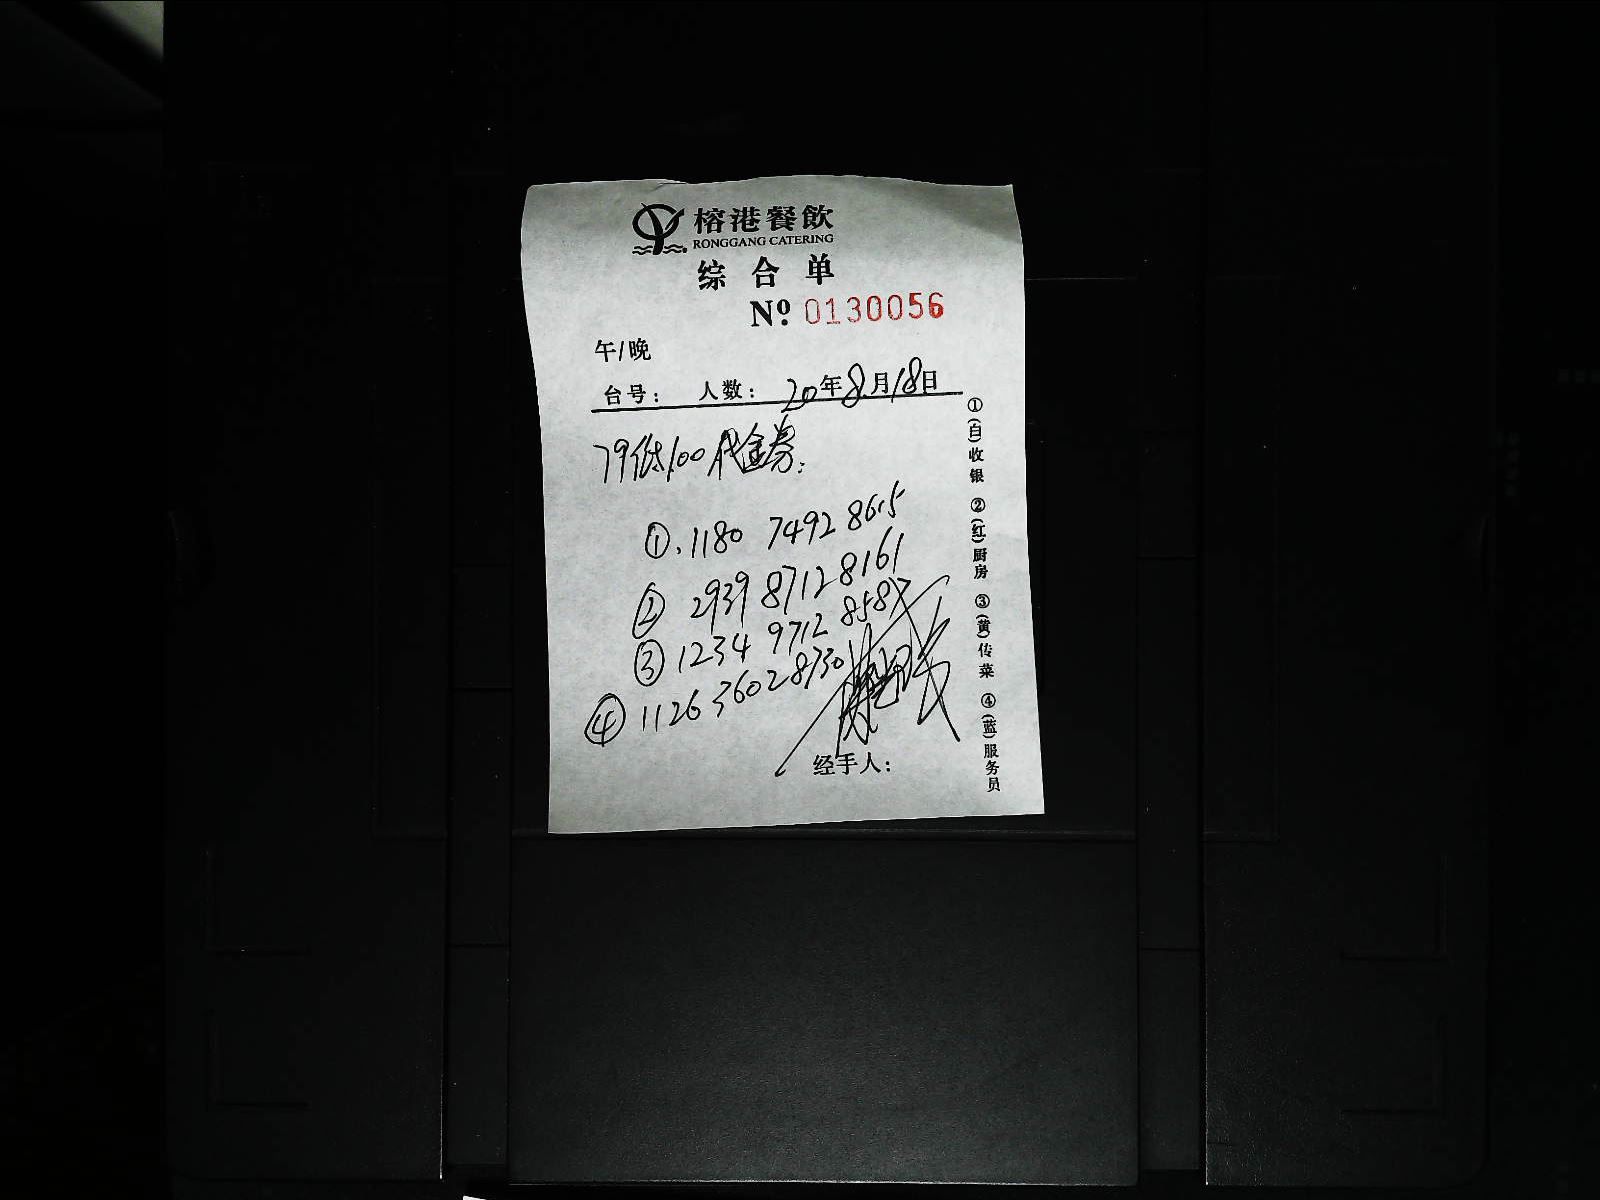 榕港餐飲
RONGGANG CATERING
综合单
Nº 0130056
午/晚
台号: 人数: 20年8月18日
79低100代金券:
①. 1180 7492 8615
② 2939 8712 8161
③ 1234 9712 8587
④ 1126 3602 8730
经手人:
①(白)收银 ②(红)厨房 ③(黄)传菜 ④(蓝)服务员